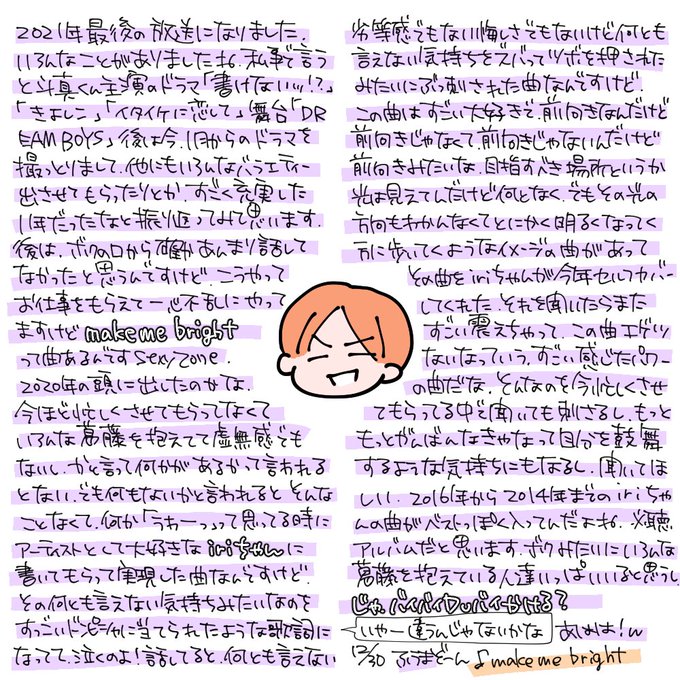 2021年最後の放送になりました.
いろんなことがありましたね.私事で言う
と斗真くん主演のドラマ「書けないッ!?」
「きよしこ」「イタイケに恋して」舞台「DR
EAM BOYS」後は今、1月からのドラマを
撮っとりまして、他にもいろんなバラエティー
出させてもらったりとか、すごく充実した
1年だったなと振り返ってみて思います.
後は、ボクの口から直接あんまり話して
なかったと思うんですけど、こうやって
お仕事をもらえて一心不乱にやって
ますけど make me bright
って曲あるんです Sexy Zone.
2020年の頭に出したのかな.
今ほど忙しくさせてもらってなくて
いろんな葛藤を抱えてて虚無感でも
ないし、かと言って何かがあるかって言われる
とない、でも何もないかと言われると そんな
ことなくて、何か「うわーっっって思ってる時に
アーティストとして大好きな iriちゃんに
書いてもらって実現した曲なんですけど.
その何とも言えない気持ちみたいなのを
すっごいドンピシャに当てられたような歌詞に
なってて、泣くのよ!話してると、何とも言えない
劣等感でもない悔しさでもないけど何とも
言えない気持ちをズバってツボを押された
みたいにぶっ刺された曲なんですけど.
この曲はすごい大好きで、前向きなんだけど
前向きじゃなくて、前向きじゃないんだけど
前向きみたいな、目指すべき場所というか
光は見えてんだけど何となく、でもその光の
方向もわかんなくてとにかく明るくなってく
方に歩いてくようなイメージの曲があって
その曲をiriちゃんが今年セルフカバー
してくれた、それを聞いたらまた
すごい震えちゃって、この曲エゲツ
ないなっていう、すごい感じたパワー
の曲だな、そんなのを今忙しくさせ
てもらってる中で聞いても刺さるし、もっと
もっとがんばんなきゃなって自分を鼓舞
するような気持ちにもなるし、聞いてほ
しい、2016年から2014年までのiriちゃ
んの曲がベストっぽく入ってんだよね、必聴
アルバムだと思います、ボクみたいにいろんな
葛藤を抱えている人達いっぱいいると思うし
じゃバイバイDJバイかける?
いやー違うんじゃないかな あぃみょ!ん
12/30 ふうまどーん ♪make me bright